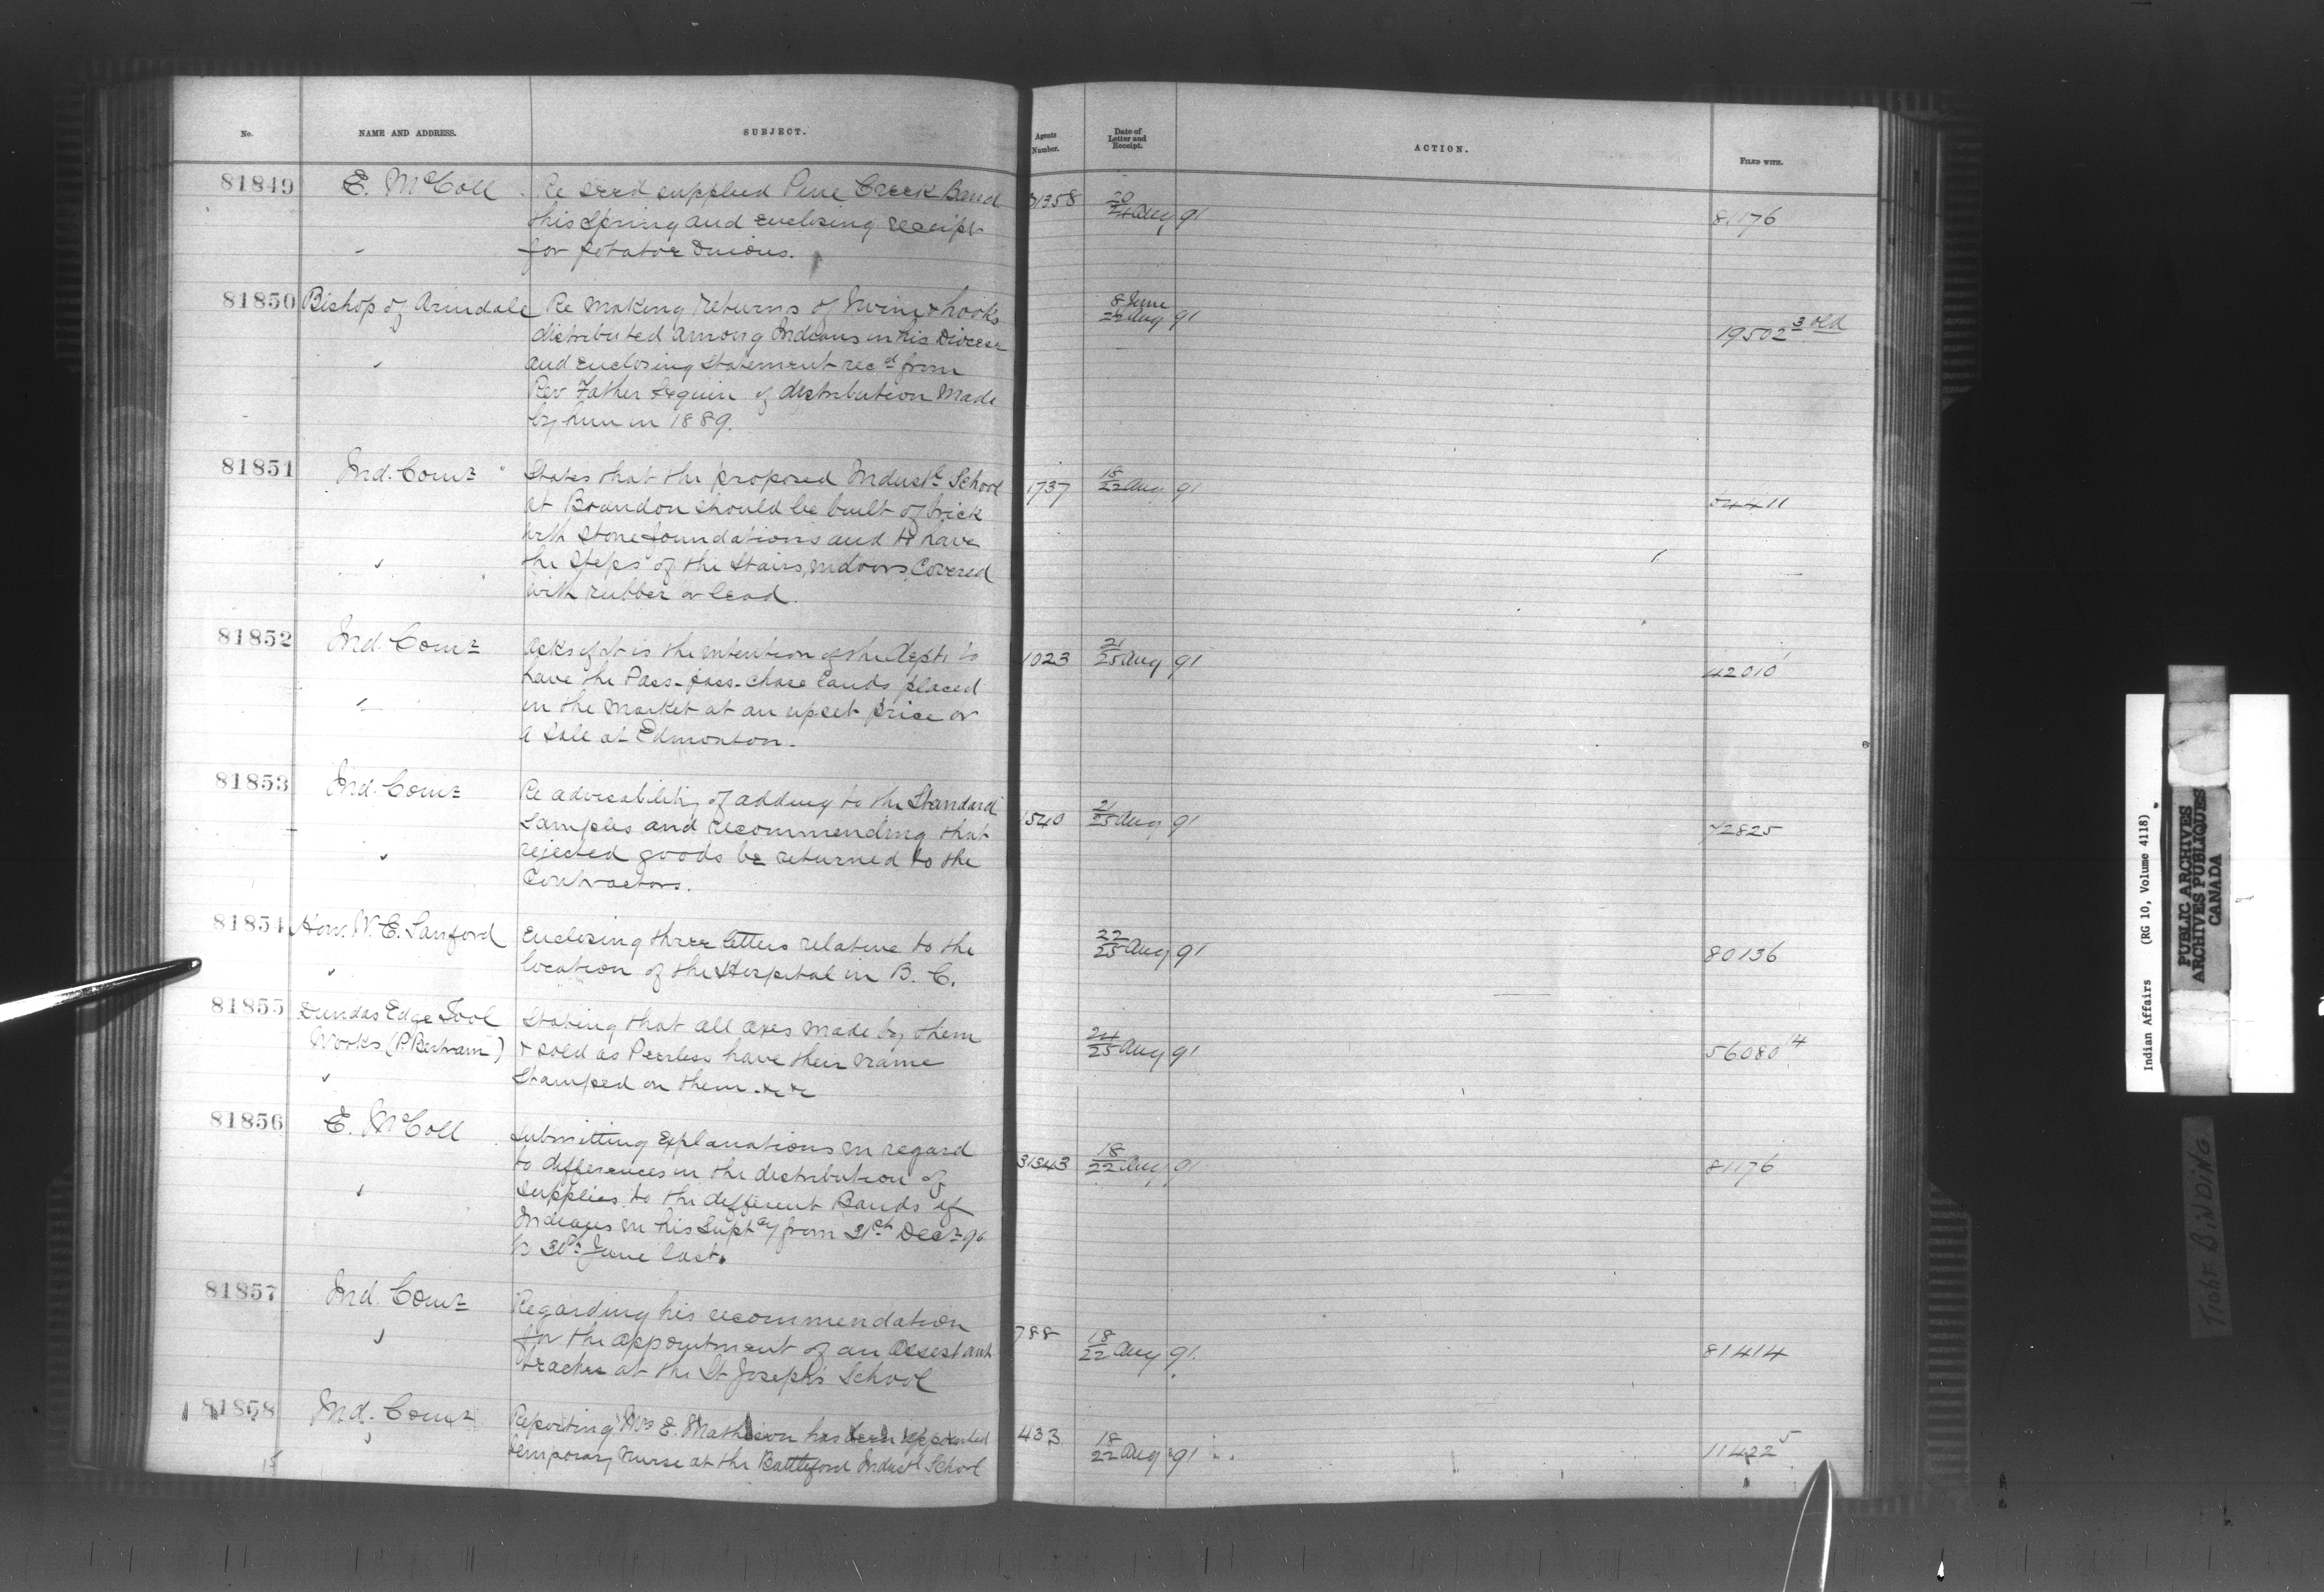 No.
NAME AND ADDRESS.
SUBJECT.
Agents
Number.
Date of
Letter and
Receipt.
ACTION.
FILED WITH.
81849
E. McColl
Re seed supplied Pine Creek Band
this Spring and enclosing receipt
for potatoe onions.
31358
20
21 Aug 91
81176
81850
Bishop of Arindale
Re making returns of twine & hooks
distributed among Indians in his Diocese
and enclosing statement recd from
Rev Father Seguin of distribution made
by him in 1889.
8 June
22 Aug 91
19502 3 old
81851
Ind. Comr
States that the proposed Industl School
at Brandon should be built of brick
with stone foundations and to have
the steps of the stairs, indoors, covered
with rubber or lead.
1737
18
22 Aug 91
54411
81852
Ind. Comr
Asks if it is the intention of the Dept. to
have the Pass-pass-chase Lands placed
in the market at an upset price or
a sale at Edmonton.
1023
21
25 Aug 91
42010
81853
Ind. Comr
Re advisability of adding to the Standard
Samples and recommending that
rejected goods be returned to the
Contractors.
1540
21
25 Aug 91
72825
81854
Hon. W. E. Sanford
Enclosing three letters relative to the
location of the Hospital in B. C.
22
25 Aug 91
80136
81855
Dundas Edge Tool
Works (P. Bertram)
Stating that all axes made by them
& sold as Peerless have their name
stamped on them. &c &c
24
25 Aug 91
56080 14
81856
E. McColl
Submitting explanations in regard
to differences in the distribution of
supplies to the different Bands of
Indians in his Suptcy from 31st Decr 90
to 30th June last.
31343
18
22 Aug 91
81176
81857
Ind. Comr
Regarding his recommendation
for the appointment of an Assistant
teacher at the St Joseph's School
788
18
22 Aug 91.
81414
81858
Ind. Comr
Reporting Mrs E. Matheson has been appointed
temporary nurse at the Battleford Industl School
433
18
22 Aug 91
11422 5
Indian Affairs (RG 10, Volume 4118)
PUBLIC ARCHIVES
ARCHIVES PUBLIQUES
CANADA
TIGHT BINDING